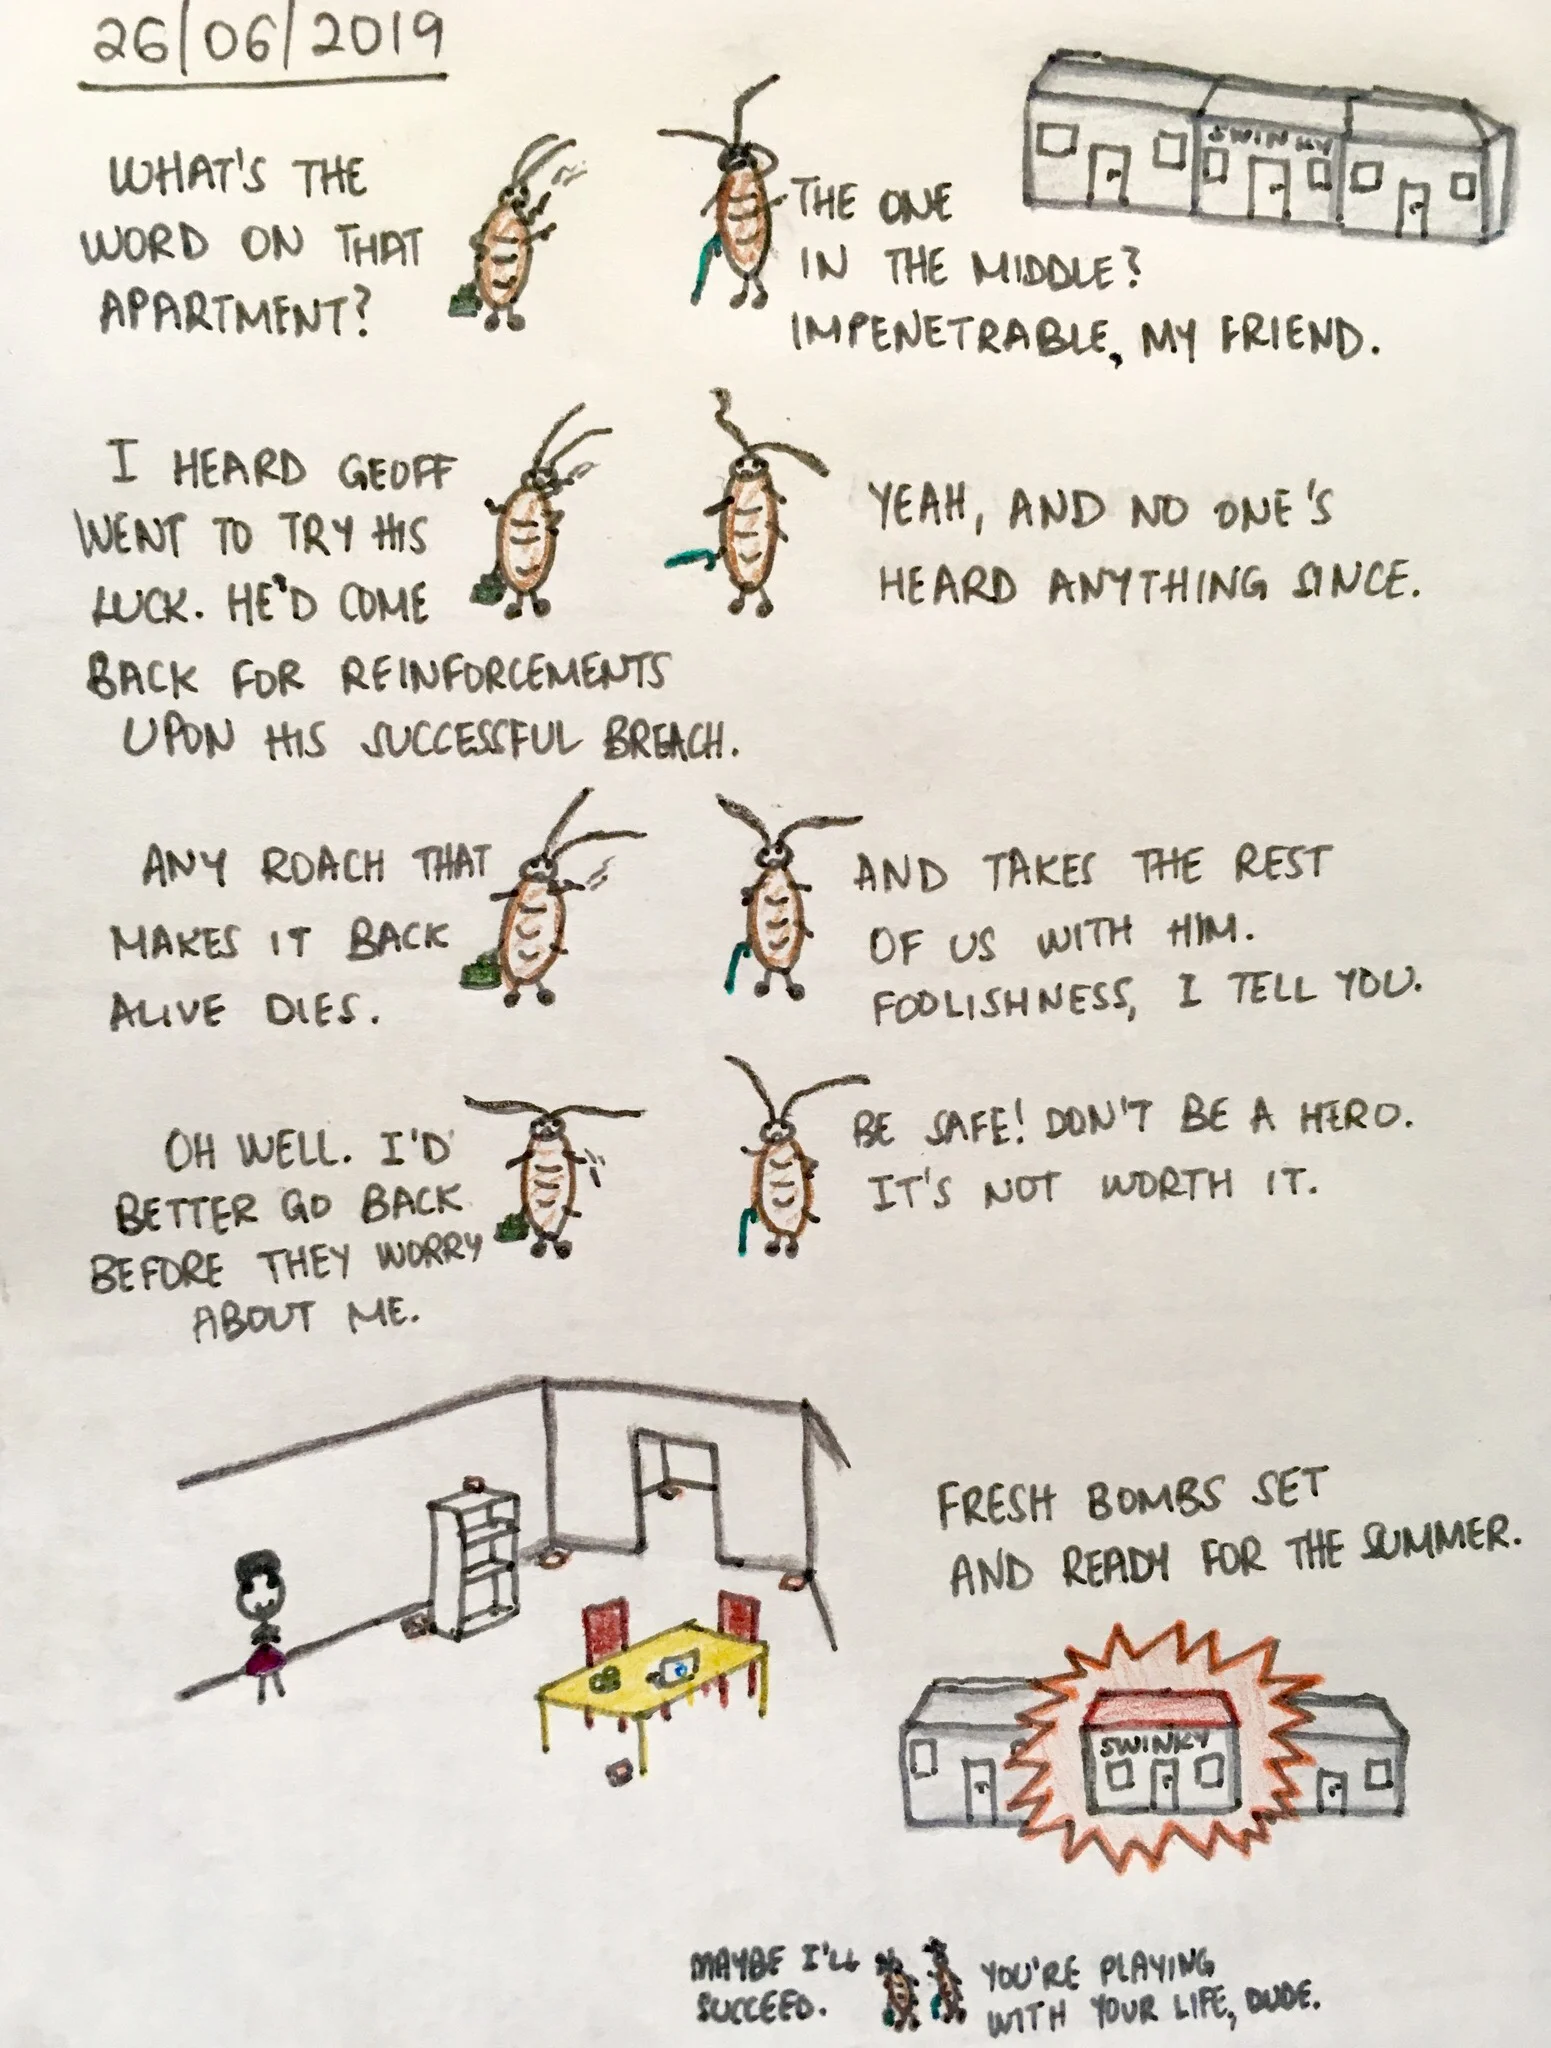 26/06/2019
WHAT'S THE
WORD ON THAT
APARTMENT?
THE ONE
IN THE MIDDLE?
IMPENETRABLE, MY FRIEND.
SWINKY
I HEARD GEOFF
WENT TO TRY HIS
LUCK. HE'D COME
BACK FOR REINFORCEMENTS
UPON HIS SUCCESSFUL BREACH.
YEAH, AND NO ONE'S
HEARD ANYTHING SINCE.
ANY ROACH THAT
MAKES IT BACK
ALIVE DIES.
AND TAKES THE REST
OF US WITH HIM.
FOOLISHNESS, I TELL YOU.
OH WELL. I'D
BETTER GO BACK
BEFORE THEY WORRY
ABOUT ME.
BE SAFE! DON'T BE A HERO.
IT'S NOT WORTH IT.
FRESH BOMBS SET
AND READY FOR THE SUMMER.
SWINKY
MAYBE I'LL
SUCCEED.
YOU'RE PLAYING
WITH YOUR LIFE, DUDE.